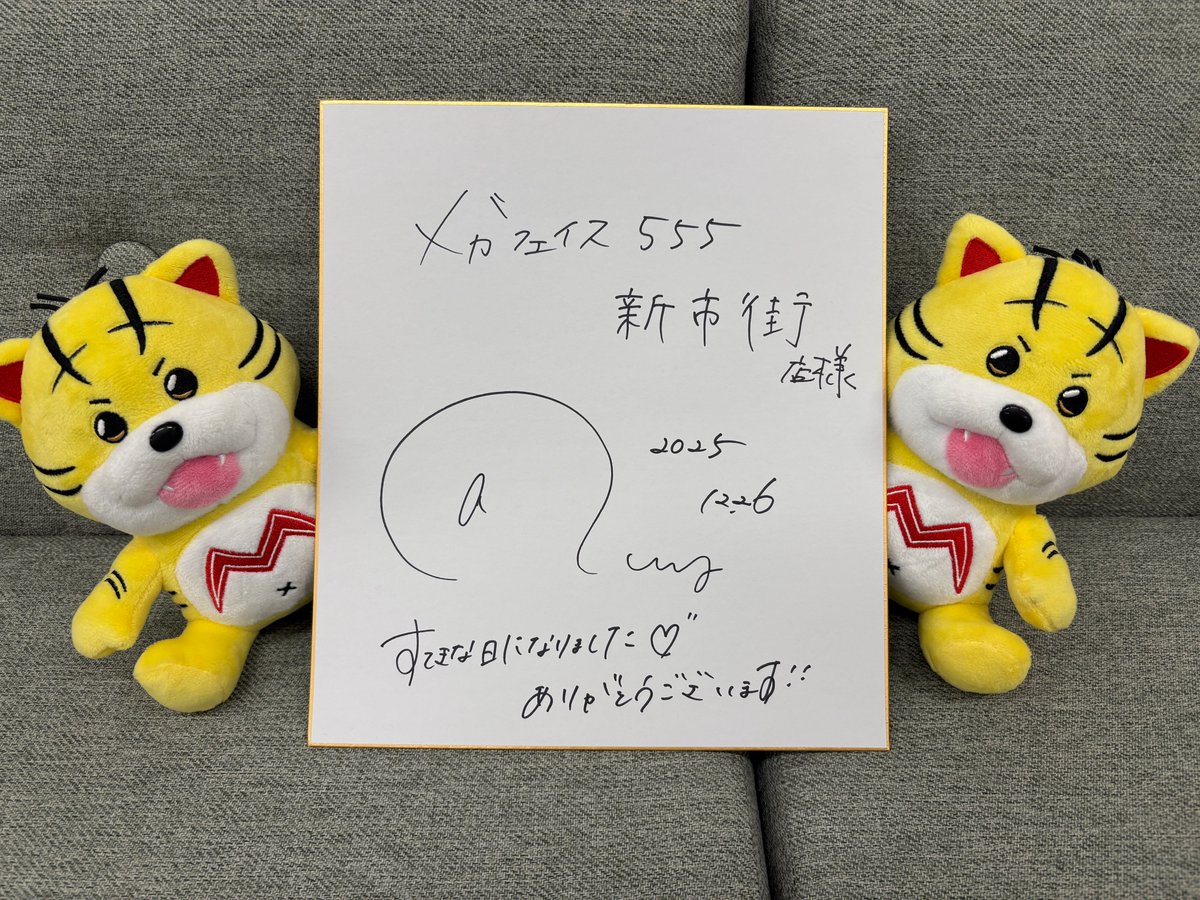 メガフェイス 555
新市街
店様
2025
12.26
a
すてきな日になりました♡"
ありがとうございます!!